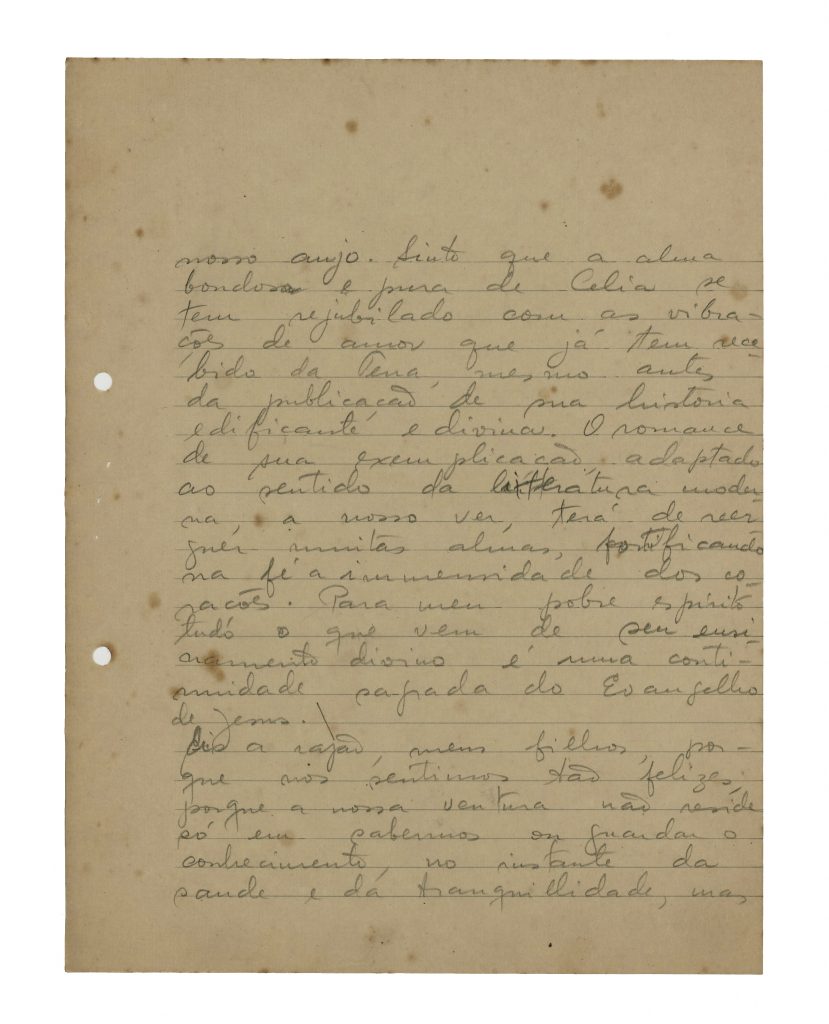 nosso anjo. Sinto que a alma
bondosa e pura de Celia se
tem rejubilado com as vibra-
ções de amor que já tem rece-
bido da Terra, mesmo antes
da publicacaõ de sua historia
edificante e divina. O romance
de sua exemplicacaõ, adaptado
ao sentido da litteratura moder-
na, a nosso ver, terá de reer-
guer muitas almas, fortificando
na fé a immensidade dos co-
rações. Para meu pobre espirito
tudo o que vem de seu ensi-
namento divino é uma conti-
nuidade sagrada do Evangelho
de Jesus.
Eis a razaõ, meus filhos, por-
que nos sentimos taõ felizes,
porque a nossa ventura naõ reside
só em sabermos ou guardar o
conhecimento, no instante da
saude e da tranquillidade, mas